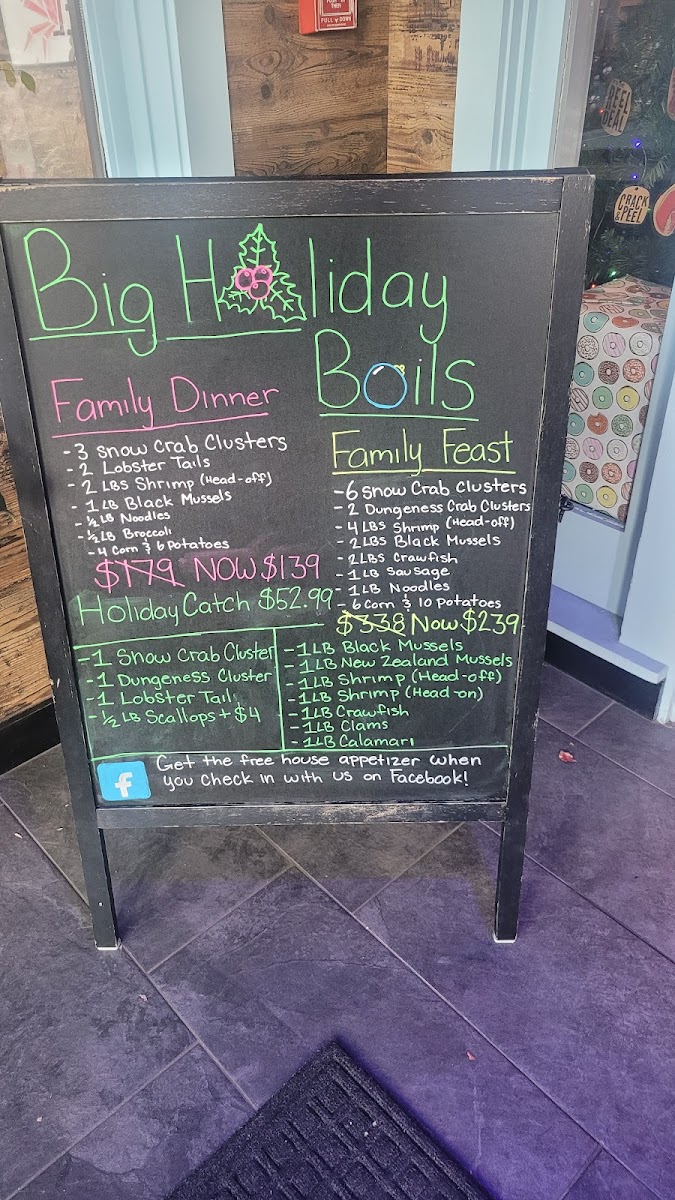 PULL DOWN
REEL
DEAL
CRACK
& PEEL
Big Holiday
Boils
Family Dinner
- 3 Snow Crab Clusters
- 2 Lobster Tails
- 2 LBS Shrimp (Head-off)
- 1 LB Black Mussels
- ½ LB Noodles
- ½ LB Broccoli
- 4 Corn & 6 Potatoes
$179 NOW $139
Family Feast
- 6 Snow Crab Clusters
- 2 Dungeness Crab Clusters
- 4 LBS Shrimp (Head-off)
- 2 LBS Black Mussels
- 2 LBS Crawfish
- 1 LB Sausage
- 1 LB Noodles
- 6 Corn & 10 Potatoes
$338 Now $239
Holiday Catch $52.99
- 1 Snow Crab Cluster
- 1 Dungeness Cluster
- 1 Lobster Tail
- ½ LB Scallops + $4
- 1 LB Black Mussels
- 1 LB New Zealand Mussels
- 1 LB Shrimp (Head-off)
- 1 LB Shrimp (Head-on)
- 1 LB Crawfish
- 1 LB Clams
- 1 LB Calamari
f
Get the free house appetizer when
you check in with us on Facebook!